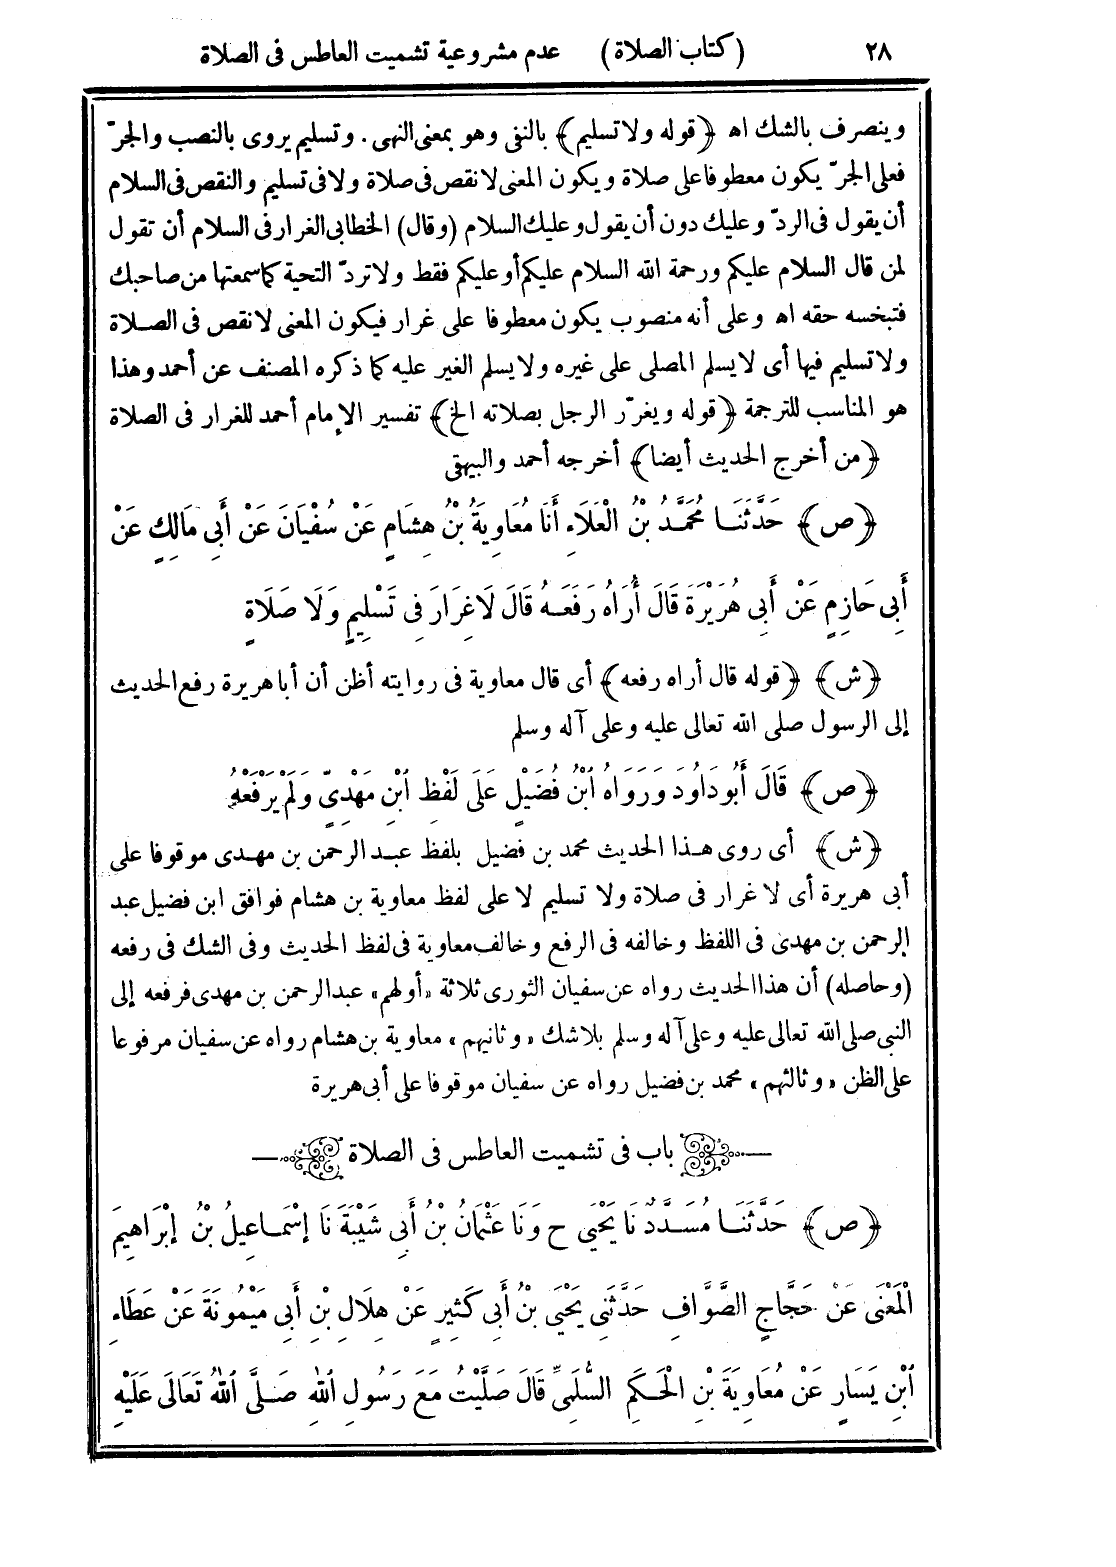 ٢٨ (كتاب الصلاة) عدم مشروعية تشميت العاطس فى الصلاة
وينصرف بالشك اه ﴿قوله ولا تسليم﴾ بالنفى وهو بمعنى النهى. وتسليم يروى بالنصب والجرّ
فعلى الجرّ يكون معطوفا على صلاة ويكون المعنى لا نقص فى صلاة ولا فى تسليم والنقص فى السلام
أن يقول فى الردّ وعليك دون أن يقول وعليك السلام (وقال) الخطابى الغرار فى السلام أن تقول
لمن قال السلام عليكم ورحمة الله السلام عليكم أو عليكم فقط ولا تردّ التحية كما سمعتها من صاحبك
فتبخسه حقه اه وعلى أنه منصوب يكون معطوفا على غرار فيكون المعنى لا نقص فى الصلاة
ولا تسليم فيها أى لا يسلم المصلى على غيره ولا يسلم الغير عليه كما ذكره المصنف عن أحمد وهذا
هو المناسب للترجمة ﴿قوله ويغرّر الرجل بصلاته الخ﴾ تفسير الإمام أحمد للغرار فى الصلاة
﴿من أخرج الحديث أيضا﴾ أخرجه أحمد والبيهقى
﴿ص﴾ حَدَّثَنَا مُحَمَّدُ بْنُ الْعَلَاءِ أَنَا مُعَاوِيَةُ بْنُ هِشَامٍ عَنْ سُفْيَانَ عَنْ أَبِى مَالِكٍ عَنْ
أَبِى حَازِمٍ عَنْ أَبِى هُرَيْرَةَ قَالَ أُرَاهُ رَفَعَهُ قَالَ لَا غِرَارَ فِى تَسْلِيمٍ وَلَا صَلَاةٍ
﴿ش﴾ ﴿قوله قال أراه رفعه﴾ أى قال معاوية فى روايته أظن أن أبا هريرة رفع الحديث
إلى الرسول صلى الله تعالى عليه وعلى آله وسلم
﴿ص﴾ قَالَ أَبُو دَاوُدَ وَرَوَاهُ ابْنُ فُضَيْلٍ عَلَى لَفْظِ ابْنِ مَهْدِىٍّ وَلَمْ يَرْفَعْهُ
﴿ش﴾ أى روى هذا الحديث محمد بن فضيل بلفظ عبد الرحمن بن مهدى موقوفا على
أبى هريرة أى لا غرار فى صلاة ولا تسليم لا على لفظ معاوية بن هشام فوافق ابن فضيل عبد
الرحمن بن مهدى فى اللفظ وخالفه فى الرفع وخالف معاوية فى لفظ الحديث وفى الشك فى رفعه
(وحاصله) أن هذا الحديث رواه عن سفيان الثورى ثلاثة «أولهم» عبد الرحمن بن مهدى فرفعه إلى
النبى صلى الله تعالى عليه وعلى آله وسلم بلا شك «وثانيهم» معاوية بن هشام رواه عن سفيان مرفوعا
على الظن «وثالثهم» محمد بن فضيل رواه عن سفيان موقوفا على أبى هريرة
باب فى تشميت العاطس فى الصلاة
﴿ص﴾ حَدَّثَنَا مُسَدَّدٌ نَا يَحْيَى ح وَنَا عُثْمَانُ بْنُ أَبِى شَيْبَةَ نَا إِسْمَاعِيلُ بْنُ إِبْرَاهِيمَ
الْمَعْنَى عَنْ حَجَّاجٍ الصَّوَّافِ حَدَّثَنِى يَحْيَى بْنُ أَبِى كَثِيرٍ عَنْ هِلَالِ بْنِ أَبِى مَيْمُونَةَ عَنْ عَطَاءِ
ابْنِ يَسَارٍ عَنْ مُعَاوِيَةَ بْنِ الْحَكَمِ السُّلَمِىِّ قَالَ صَلَّيْتُ مَعَ رَسُولِ اللهِ صَلَّى اللهُ تَعَالَى عَلَيْهِ